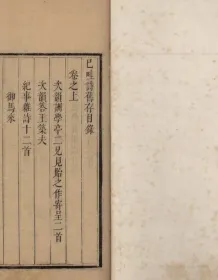 巳畦詩舊存目錄
卷之上
次韻酬學亭二兄見貽之作寄呈二首
次韻答王棐夫
紀事雜詩十二首
御馬來